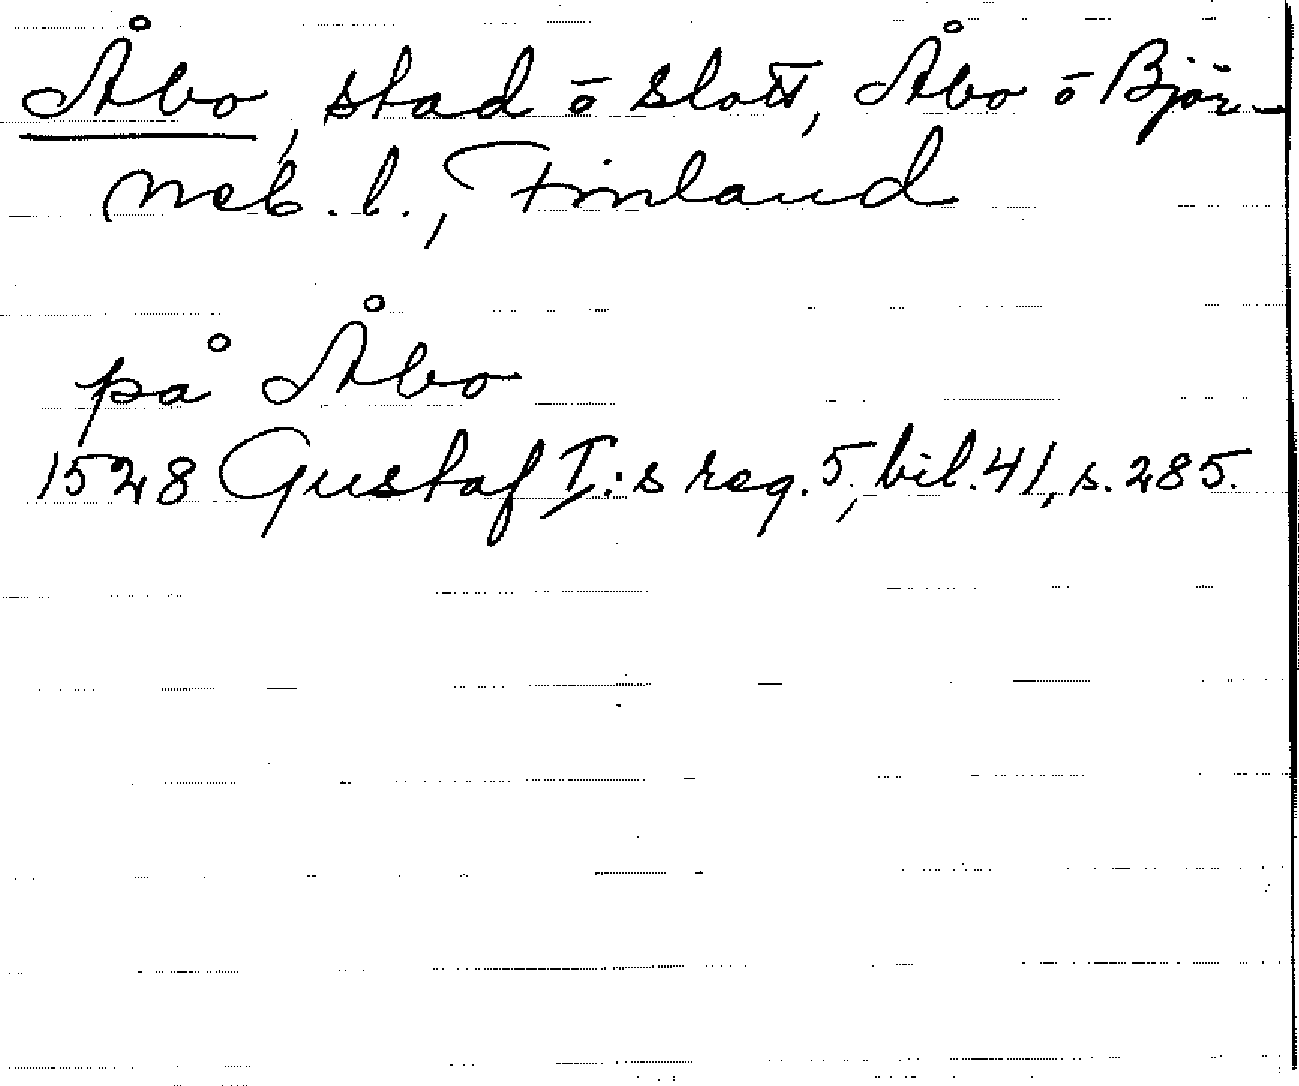 Åbo, stad ō slott, Åbo ō Björ-
neb. l., Finland
på Åbo
1528 Gustaf I:s reg. 5, bil. 41, s. 285.